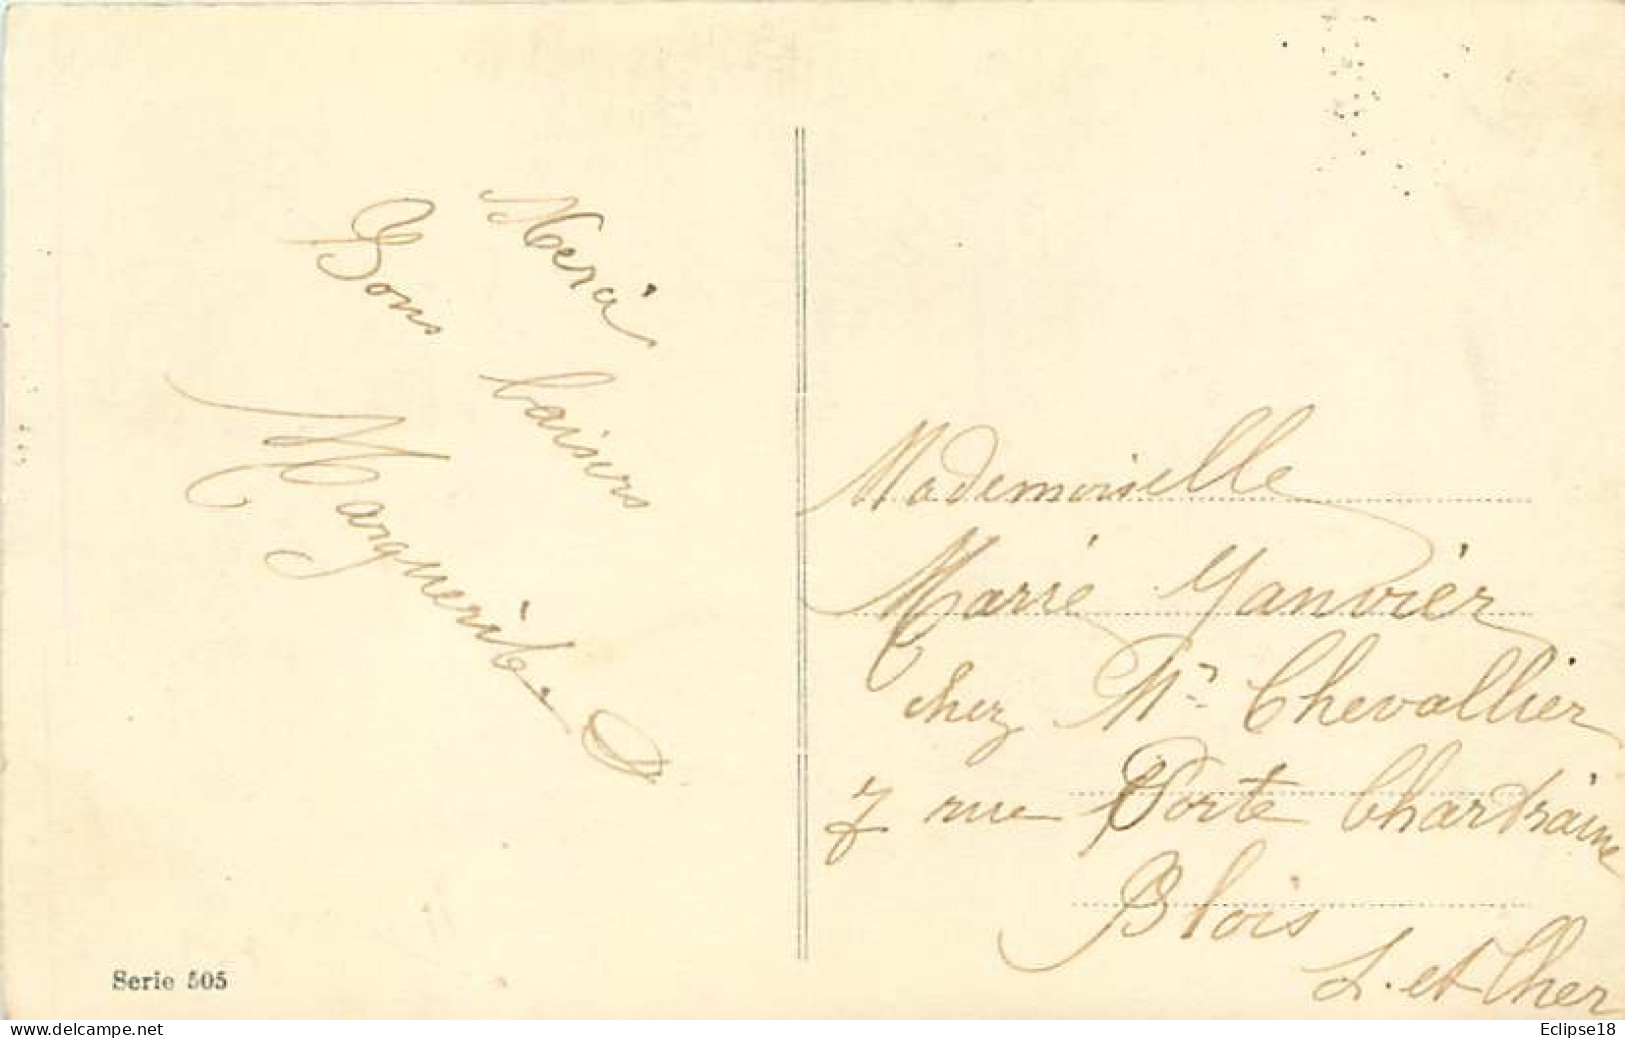 Merci
Bons baisers
Marguerite
Mademoiselle
Marie Janvier
chez Mr Chevallier
7 rue Porte Chartraine
Blois
L. et Cher
Serie 505
delcampe.net
Eclipse18